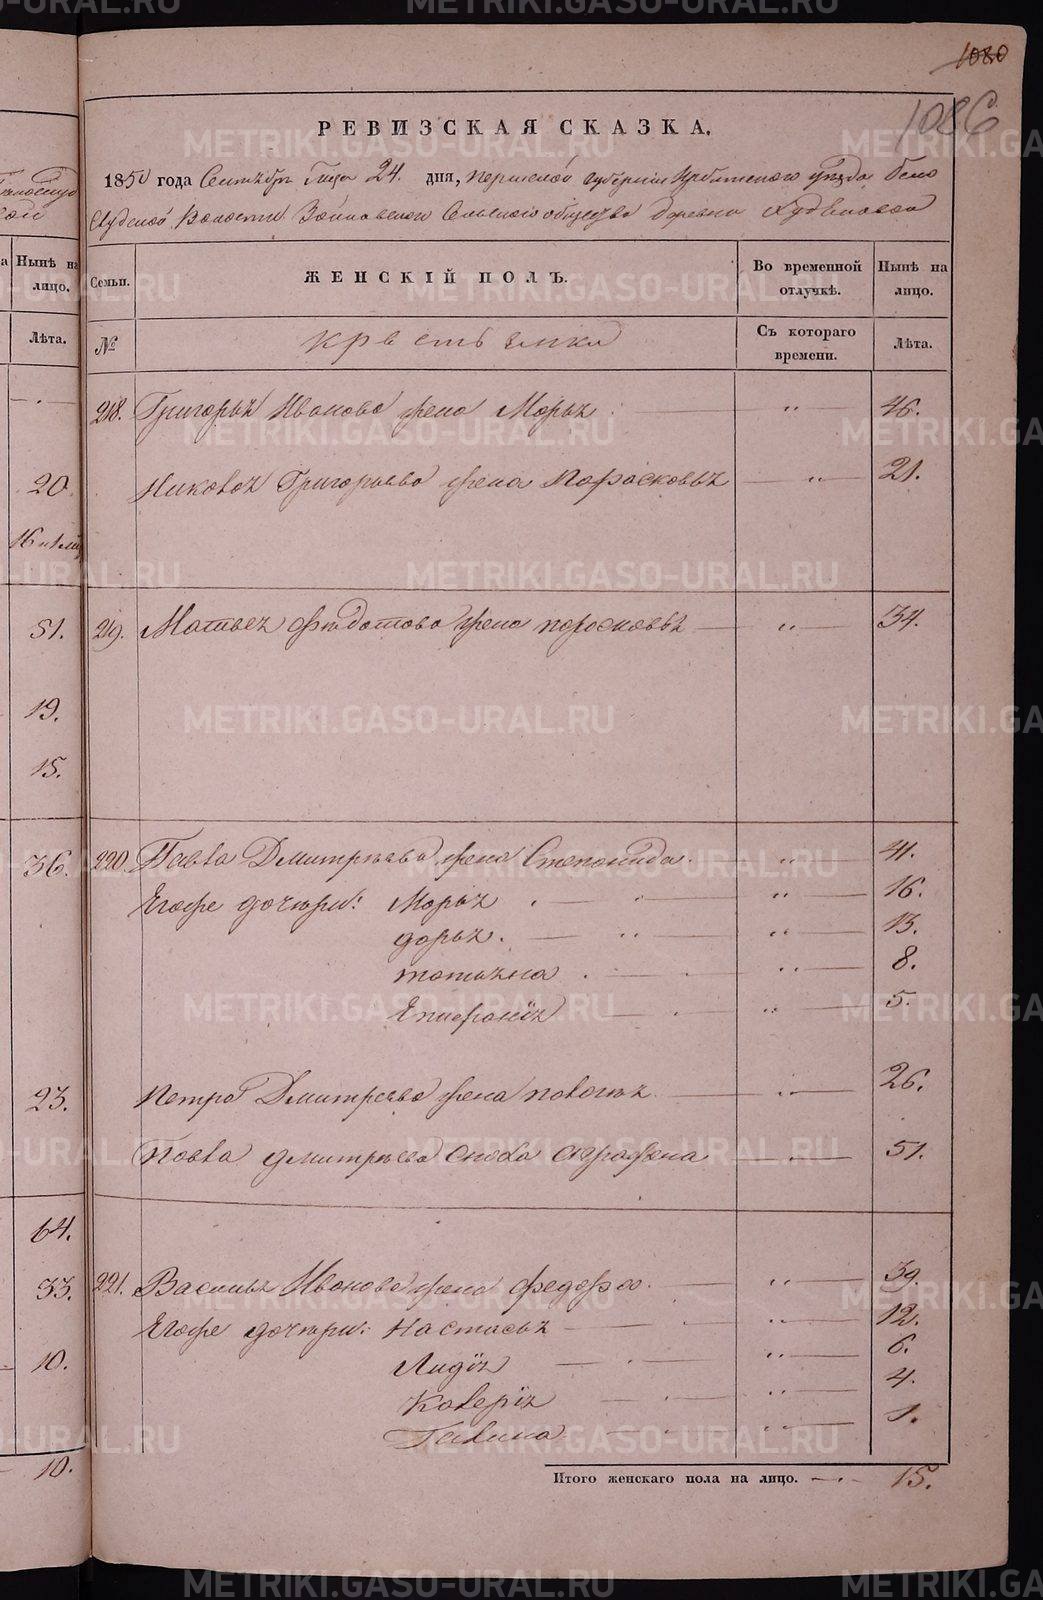 1080
1086
РЕВИЗСКАЯ СКАЗКА.
1850 года Сентября Месяца 24. дня, Пермской губернии Ирбитского уезда Бело
Слудской Волости Зайковского Сельского общества Деревни
Семьи.
ЖЕНСКІЙ ПОЛЪ.
Во временной отлучкѣ.
Нынѣ на лицо.
№
крестьянки
Съ котораго времени.
Лѣта.
218. Григорья Иванова жена Марья — " — 46.
Никовоя Григорьева жена Парасковья — " — 21.
219. Матвея Федотова жена парасковья — " — 34.
220. Павла Дмитриева жена Степанида. — " — 41.
Егоже дочери: Марья . — " — " — 16.
дарья. — " — " — 13.
татьяна . — " — " — 8.
Епифанія — " — " — 5.
Петра Дмитриева жена — " — 26.
Павла дмитриева сноха аграфена — " — 51.
221. Василья Иванова жена федора. — " — 39.
Егоже дочери: Настасья — " — 12.
Лидія — " — " — 6.
Каверія — " — " — 4.
Гавина — " — " — 1.
Итого женскаго пола на лицо. — " — 15.
Нынѣ на лицо.
Лѣта.
20
51.
19.
15.
36.
23.
64.
33.
10.
10.
METRIKI.GASO-URAL.RU